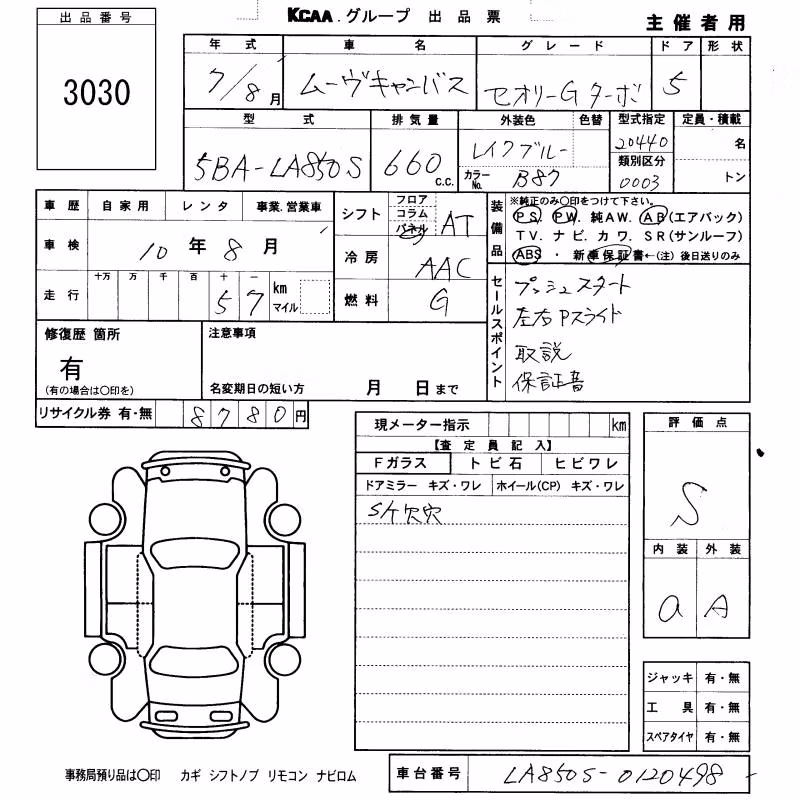 出品番号
3030
KCAA.グループ 出品票
主催者用
年式 車名 グレード ドア 形状
7/8月 ムーヴキャンバス セオリーGターボ 5
型式 排気量 外装色 色替 型式指定 定員・積載
5BA-LA850S 660 C.C. レイクブルー 20440 名
カラーNo. B87 類別区分 0003 トン
車歴 自家用 レンタ 事業.営業車
車検 10年8月
走行 十万 万 千 百 十 一
57 km マイル
シフト フロア コラム パネル AT
冷房 AAC
燃料 G
装備品
※純正のみ〇印をつけて下さい。
PS. PW. 純AW. AB(エアバック)
TV. ナビ. カワ. SR(サンルーフ)
ABS ・ 新車保証書←(注)後日送りのみ
セールスポイント
プッシュスタート
左右Pスライド
取説
保証書
修復歴 箇所
有
(有の場合は〇印を)
注意事項
名変期日の短い方 月 日まで
リサイクル券 有・無 8780円
現メーター指示 km
【査定員記入】
Fガラス トビ石 ヒビワレ
ドアミラー キズ・ワレ ホイール(CP) キズ・ワレ
評価点
S
内装 外装
a A
ジャッキ 有・無
工具 有・無
スペアタイヤ 有・無
事務局預り品は〇印 カギ シフトノブ リモコン ナビロム
車台番号 LA850S-0120498